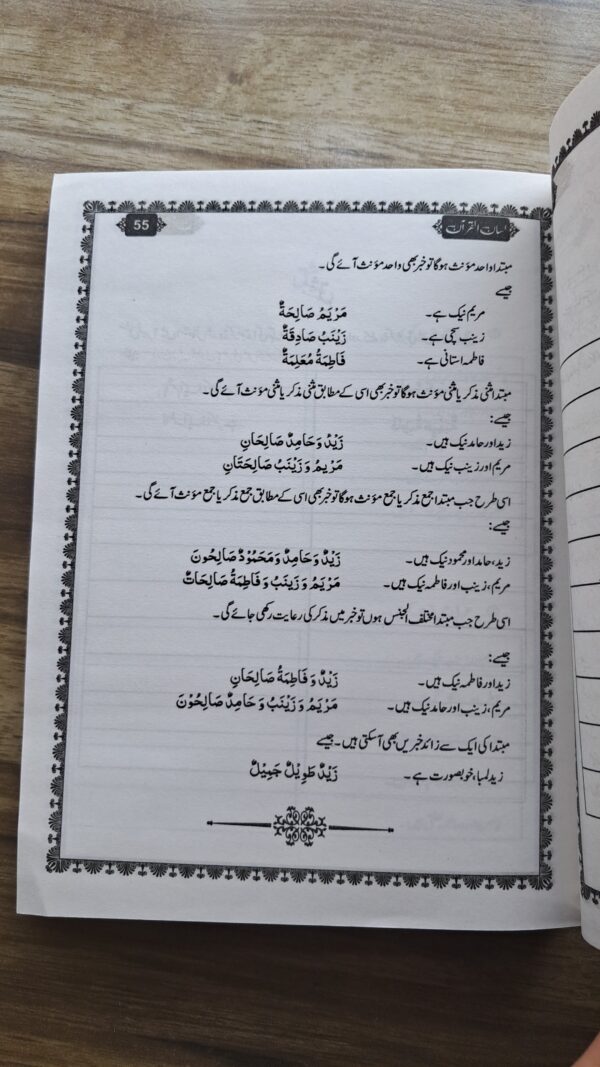 لسان القرآن
55
مبتدا واحد مؤنث ہوگا تو خبر بھی واحد مؤنث آئے گی۔
جیسے
مریم نیک ہے۔ مَرْيَمُ صَالِحَةٌ
زینب سچی ہے۔ زَيْنَبُ صَادِقَةٌ
فاطمہ استانی ہے۔ فَاطِمَةُ مُعَلِمَةٌ
مبتدا مثنیٰ مذکر یا مثنیٰ مؤنث ہوگا تو خبر بھی اسی کے مطابق مثنیٰ مذکر یا مثنیٰ مؤنث آئے گی۔
جیسے:
زید اور حامد نیک ہیں۔ زَيْدٌ وَحَامِدٌ صَالِحَانِ
مریم اور زینب نیک ہیں۔ مَرْيَمُ وَ زَيْنَبُ صَالِحَتَانِ
اسی طرح جب مبتدا جمع مذکر یا جمع مؤنث ہوگا تو خبر بھی اسی کے مطابق جمع مذکر یا جمع مؤنث آئے گی۔
جیسے:
زید، حامد اور محمود نیک ہیں۔ زَيْدٌ وَحَامِدٌ وَمَحْمُوْدٌ صَالِحُونَ
مریم، زینب اور فاطمہ نیک ہیں۔ مَرْيَمُ وَ زَيْنَبُ وَ فَاطِمَةُ صَالِحَاتٌ
اسی طرح جب مبتدا مختلف الجنس ہوں تو خبر میں مذکر کی رعایت رکھی جائے گی۔
جیسے:
زید اور فاطمہ نیک ہیں۔ زَيْدٌ وَ فَاطِمَةُ صَالِحَانِ
مریم، زینب اور حامد نیک ہیں۔ مَرْيَمُ وَ زَيْنَبُ وَ حَامِدٌ صَالِحُوْنَ
مبتدا کی ایک سے زائد خبریں بھی آسکتی ہیں۔ جیسے
زید لمبا، خوبصورت ہے۔ زَيْدٌ طَوِيْلٌ جَمِيْلٌ